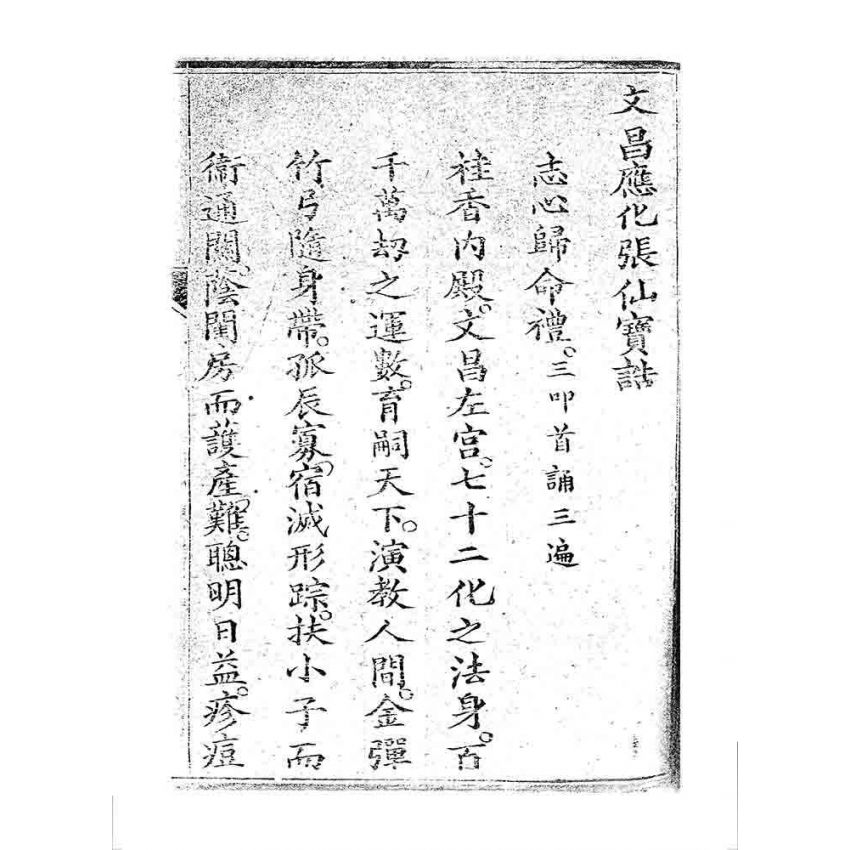 文昌應化張仙寶誥
志心歸命禮。三叩首誦三遍
桂香內殿。文昌左宮。七十二化之法身。百
千萬劫之運數。育嗣天下。演教人間。金彈
竹弓隨身帶。孤辰寡宿滅形踪。扶小子而
衛通關。蔭閨房而護產難。聰明日益。疹痘